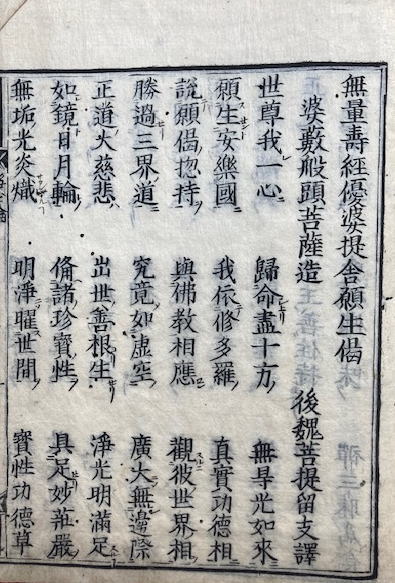 無量壽經優婆提舍願生偈
婆藪般頭菩薩造 後魏菩提留支譯
世尊我一心 歸命盡十方 無导光如來
願生安樂國 我依修多羅 真實功德相
說願偈惣持 與佛教相應 觀彼世界相
勝過三界道 究竟如虛空 廣大無邊際
正道大慈悲 出世善根生 淨光明滿足
如鏡日月輪 俻諸珍寶性 具足妙莊嚴
無垢光炎熾 明淨曜世間 寶性功德草